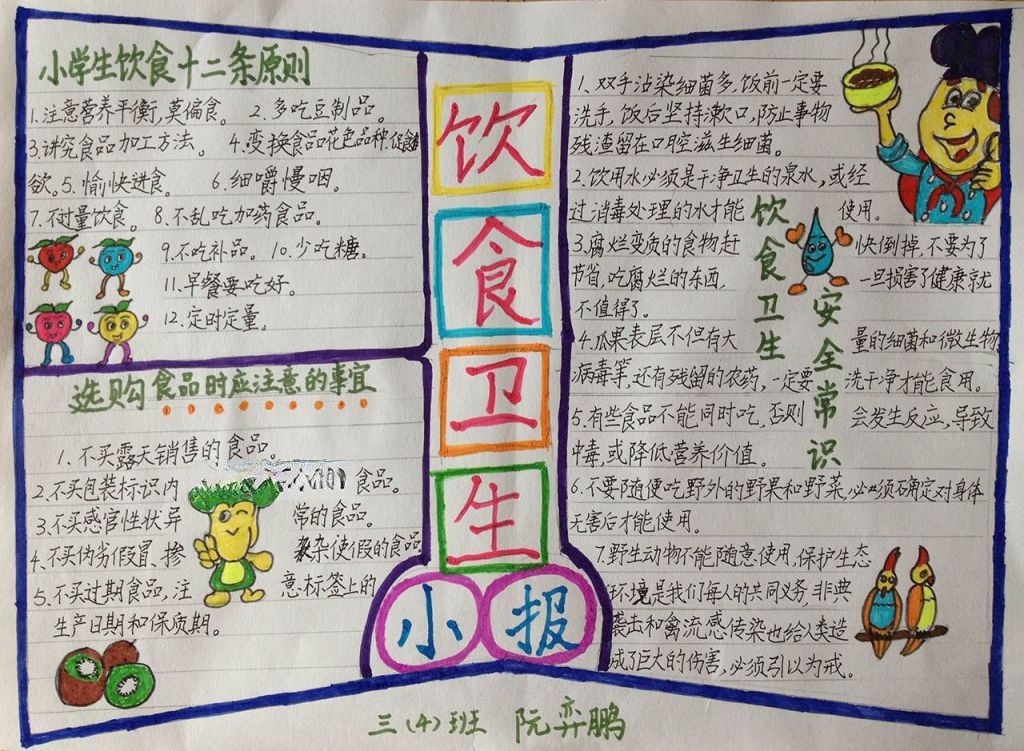 小学生饮食十二条原则
1.注意营养平衡,莫偏食。 2.多吃豆制品。
3.讲究食品加工方法。 4.变换食品花色品种,促食
欲。5.愉快进食。 6.细嚼慢咽。
7.不过量饮食。 8.不乱吃加药食品。
9.不吃补品。 10.少吃糖。
11.早餐要吃好。
12.定时定量。
选购食品时应注意的事宜
1.不买露天销售的食品。
2.不买包装标识内 食品。
3.不买感官性状异 常的食品。
4.不买伪劣假冒、掺 杂使假的食品
5.不买过期食品,注 意标签上的
生产日期和保质期。
饮
食
卫
生
小报
1、双手沾染细菌多,饭前一定要
洗手,饭后坚持漱口,防止事物
残渣留在口腔滋生细菌。
2.饮用水必须是干净卫生的泉水,或经
过消毒处理的水才能 使用。
3.腐烂变质的食物赶 快倒掉,不要为了
节省,吃腐烂的东西, 一旦损害了健康就
不值得了。
4.瓜果表层不但有大 量的细菌和微生物
病毒等,还有残留的农药,一定要 洗干净才能食用。
5.有些食品不能同时吃,否则 会发生反应,导致
中毒,或降低营养价值。
6.不要随便吃野外的野果和野菜,必须确定对身体
无害后才能使用。
7.野生动物不能随意使用,保护生态
环境是我们每人的共同义务,非典
袭击和禽流感传染也给人类造
成了巨大的伤害,必须引以为戒。
饮食卫生
安全常识
三(4)班 阮弈鹏